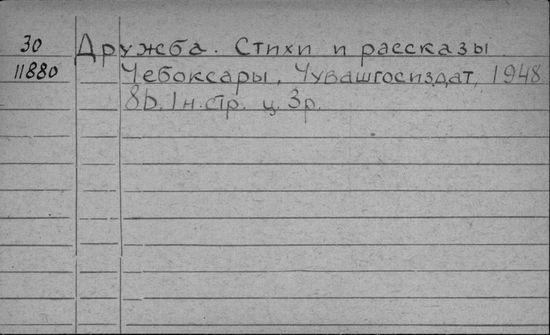 30 Дружба. Стихи и рассказы
11880 Чебоксары, Чувашгосиздат, 1948
8b. 1 н. стр. ц. 3 р.